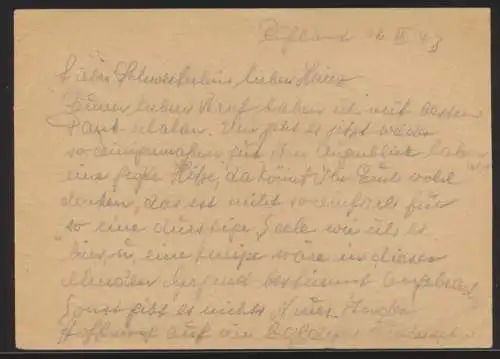 Rußland
Liebe Schwester, lieber Heinz
Deinen lieben Brief habe ich mit bestem
Dank erhalten. Mir geht es jetzt wieder
so einigermaßen gut. Im Augenblick haben wir
eine große Hitze, da könnt Ihr Euch wohl
denken, das ist nicht so einfach für
so eine durstige Seele wie ich es
bin, eine Kneipe wäre in dieser
elenden Gegend bestimmt angebracht
Sonst gibt es nichts Neues. In der
Hoffnung auf ein